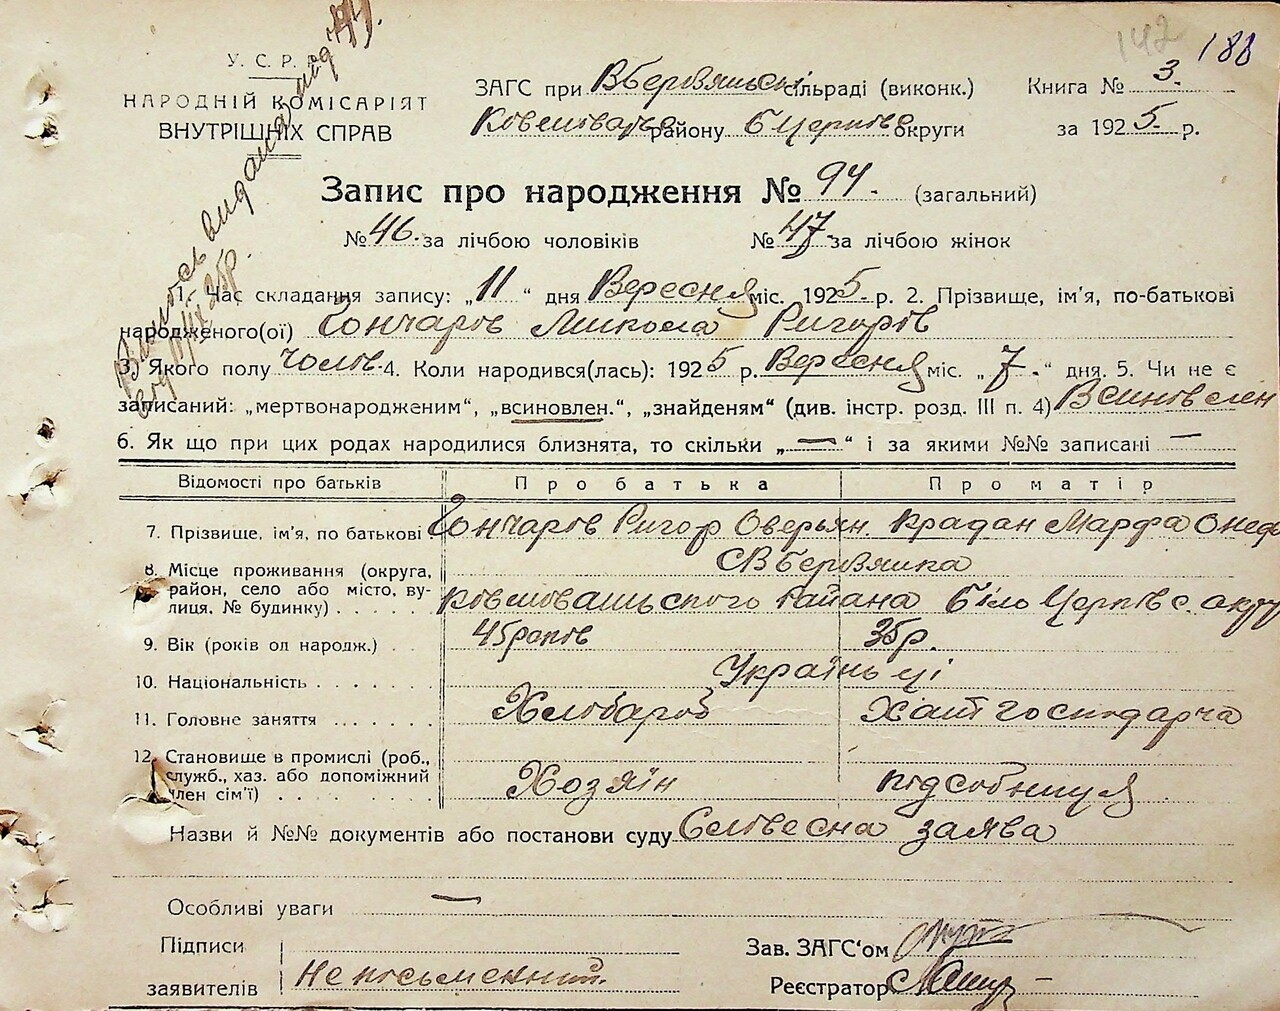 142 188
У. С. Р. Р.
НАРОДНІЙ КОМІСАРІЯТ
ВНУТРІШНІХ СПРАВ
ЗАГС при Вбервяшськ сільраді (виконк.) Книга № 3.
району Бцерківс округи за 1925 р.
Запис про народження № 94. (загальний)
№ 46. за лічбою чоловіків № 47 за лічбою жінок
1. Час складання запису: „11“ дня Вересня міс. 1925 р. 2. Прізвище, ім'я, по-батькові
народженого(ої) Гончаров Микола Ригоров
3. Якого полу чолов. 4. Коли народився(лась): 1925 р. Вересня міс. „7.“ дня. 5. Чи не є
записаний: „мертвонародженим“, „всиновлен.“, „знайденям“ (див. інстр. розд. III п. 4) Всиновлен
6. Як що при цих родах народилися близнята, то скільки „—“ і за якими №№ записані —
Відомості про батьків Про батька Про матір
7. Прізвище, ім'я, по батькові Гончаров Ригор Оверьян. Крадан Марфа
8. Місце проживання (округа, район, село або місто, вулиця, № будинку) . . . . . СВбервяшка
района Біло Церківс. окру
9. Вік (років ол народж.) . . 45 років 35р.
10. Національність . . . . . . . Українь ці
11. Головне заняття . . . . . . Хлобароб Хатгосподарча
12. Становище в промислі (роб., служб., хаз. або допоміжний член сім'ї) . . . . . . . . Хозяїн підсобниця
Назви й №№ документів або постанови суду Словесна заява
Особливі уваги —
Підписи
заявителів Не письменний.
Зав. ЗАГС'ом
Реєстратор